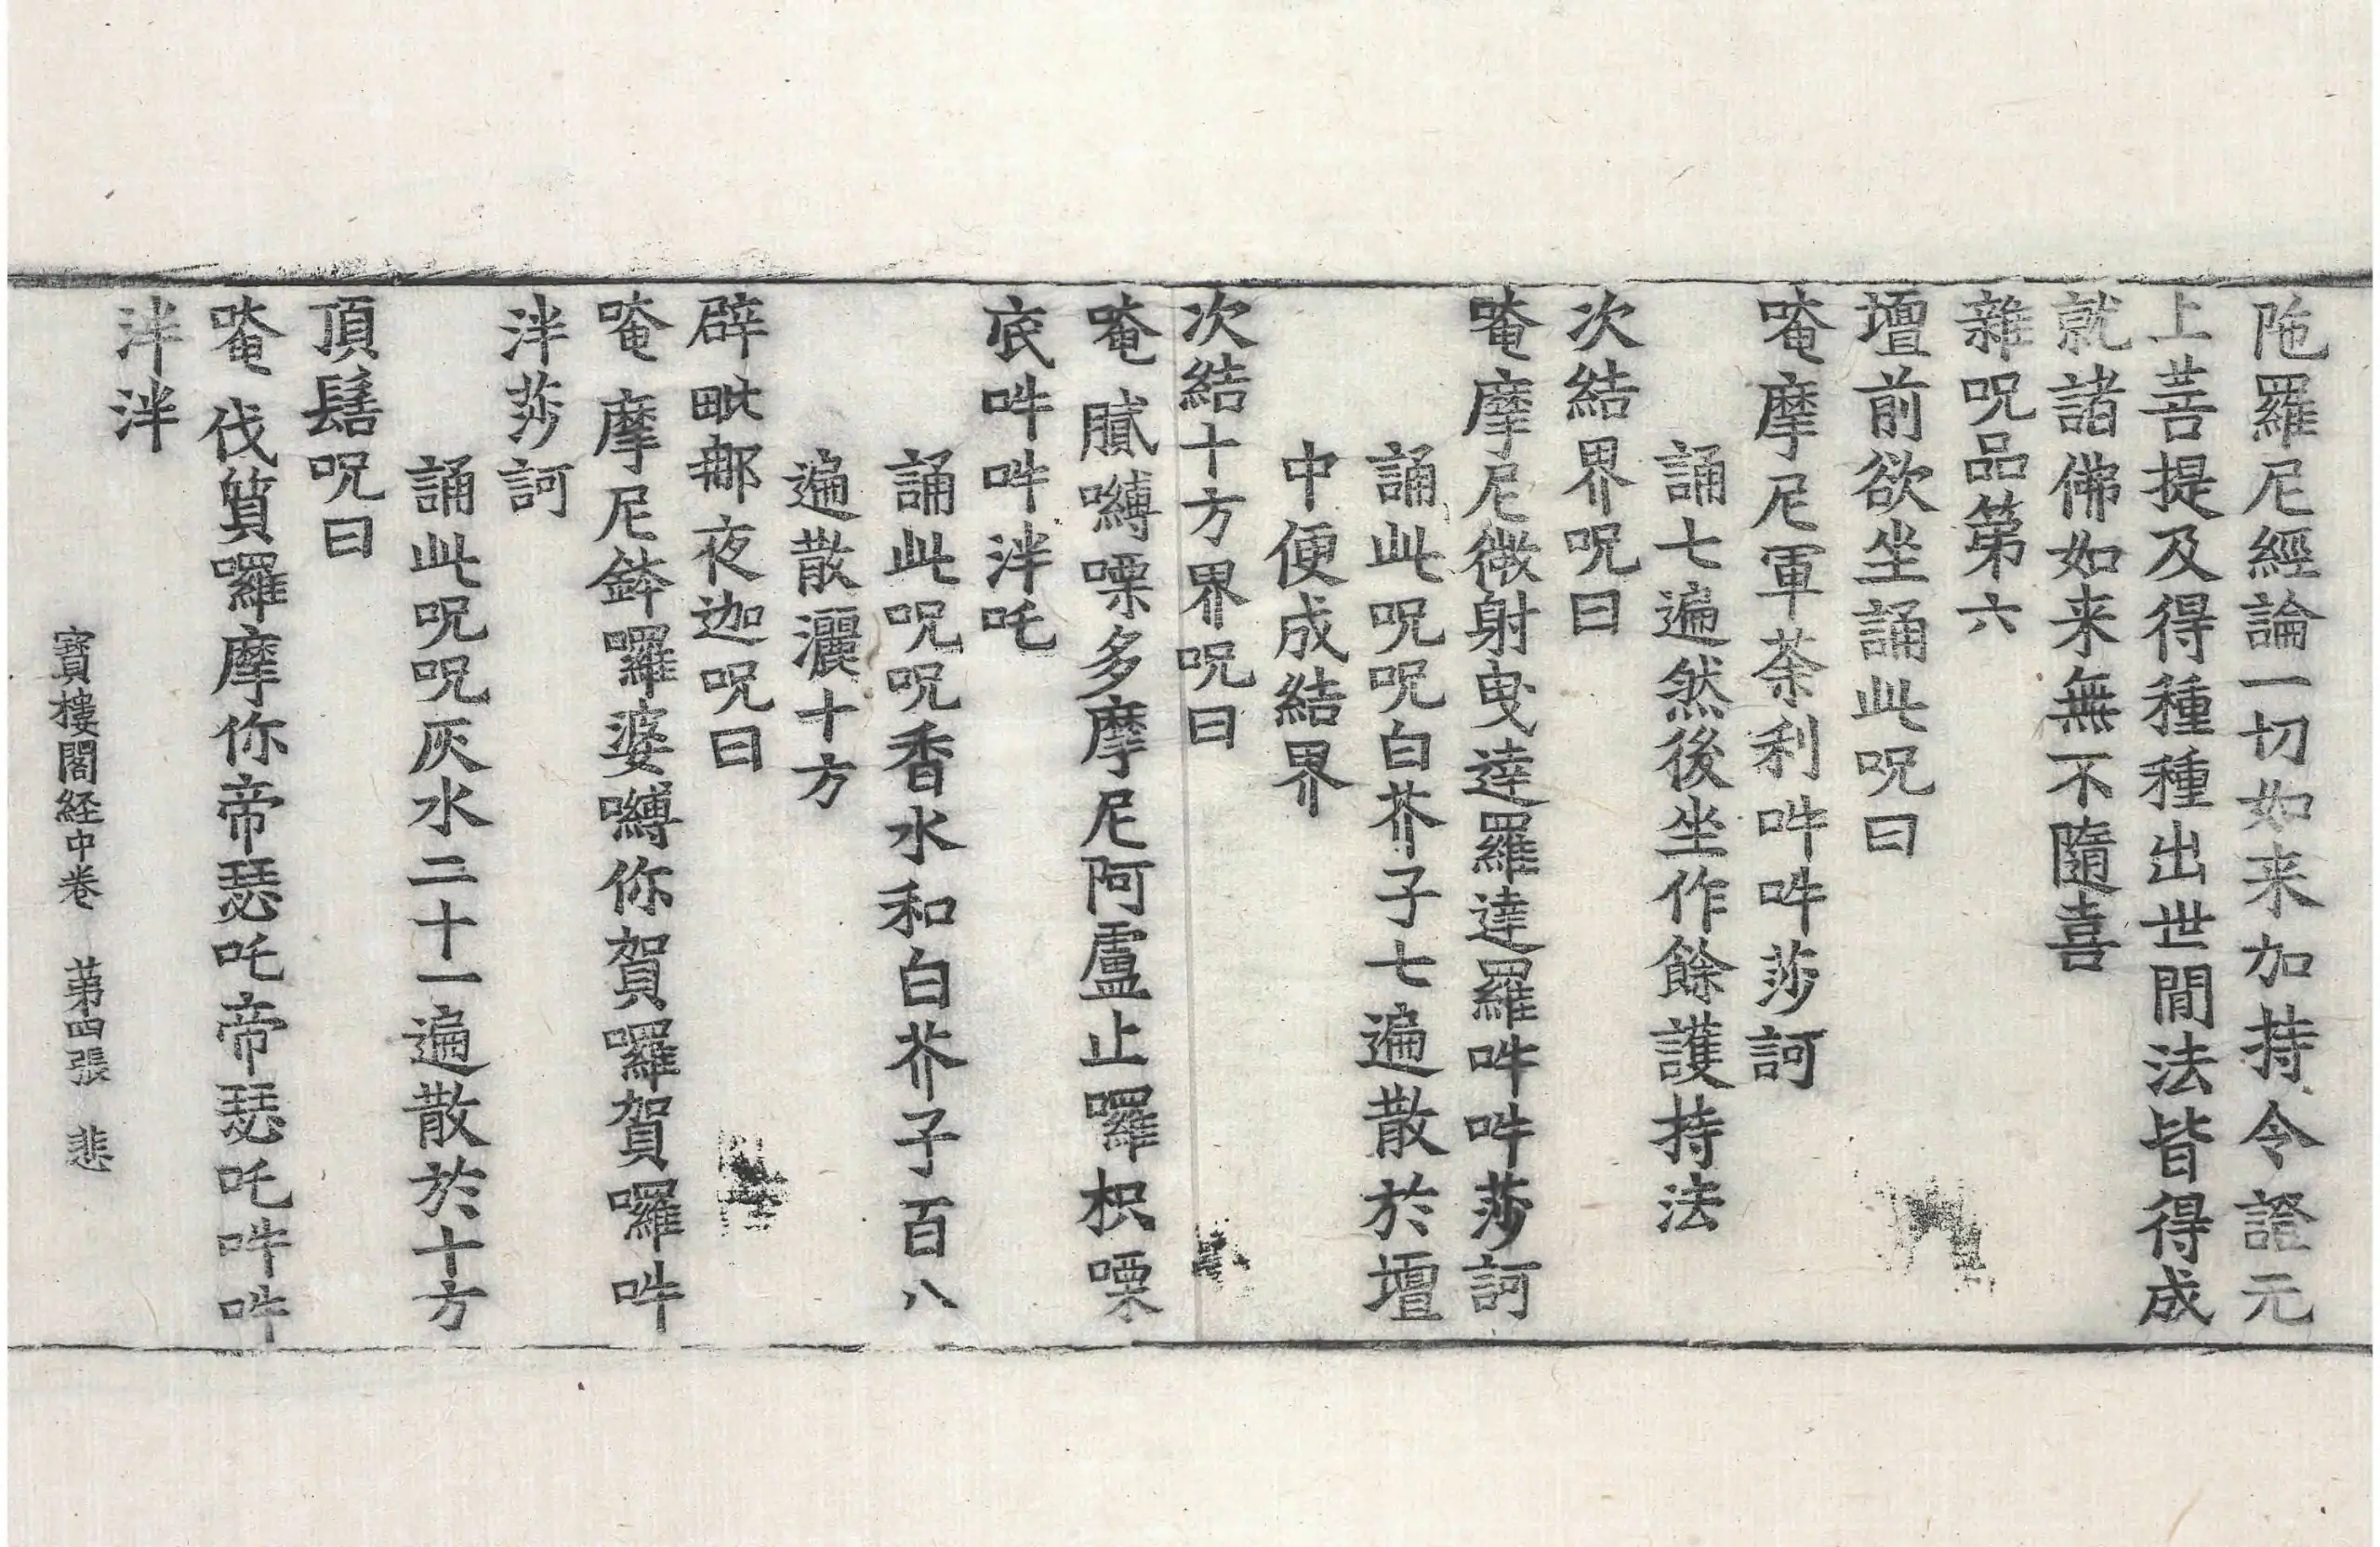 陁羅尼經論一切如来加持令證元
上菩提及得種種出世間法皆得成
就諸佛如来無不隨喜
雜呪品第六
壇前欲坐誦此呪曰
唵摩尼軍荼利吽吽莎訶
誦七遍然後坐作餘護持法
次結界呪曰
唵摩尼微射曳達羅達羅吽吽莎訶
誦此呪呪白芥子七遍散於壇
中便成結界
次結十方界呪曰
唵膩嚩㗚多摩尼阿盧止囉枳㗚
底吽吽泮吒
誦此呪呪香水和白芥子百八
遍散灑十方
辟毗那夜迦呪曰
唵摩尼鉢囉婆嚩你賀囉賀囉吽
泮莎訶
誦此呪呪灰水二十一遍散於十方
頂髻呪曰
唵伐質囉摩你帝瑟吒帝瑟吒吽吽
泮泮
寶樓閣経中卷 第四張 悲